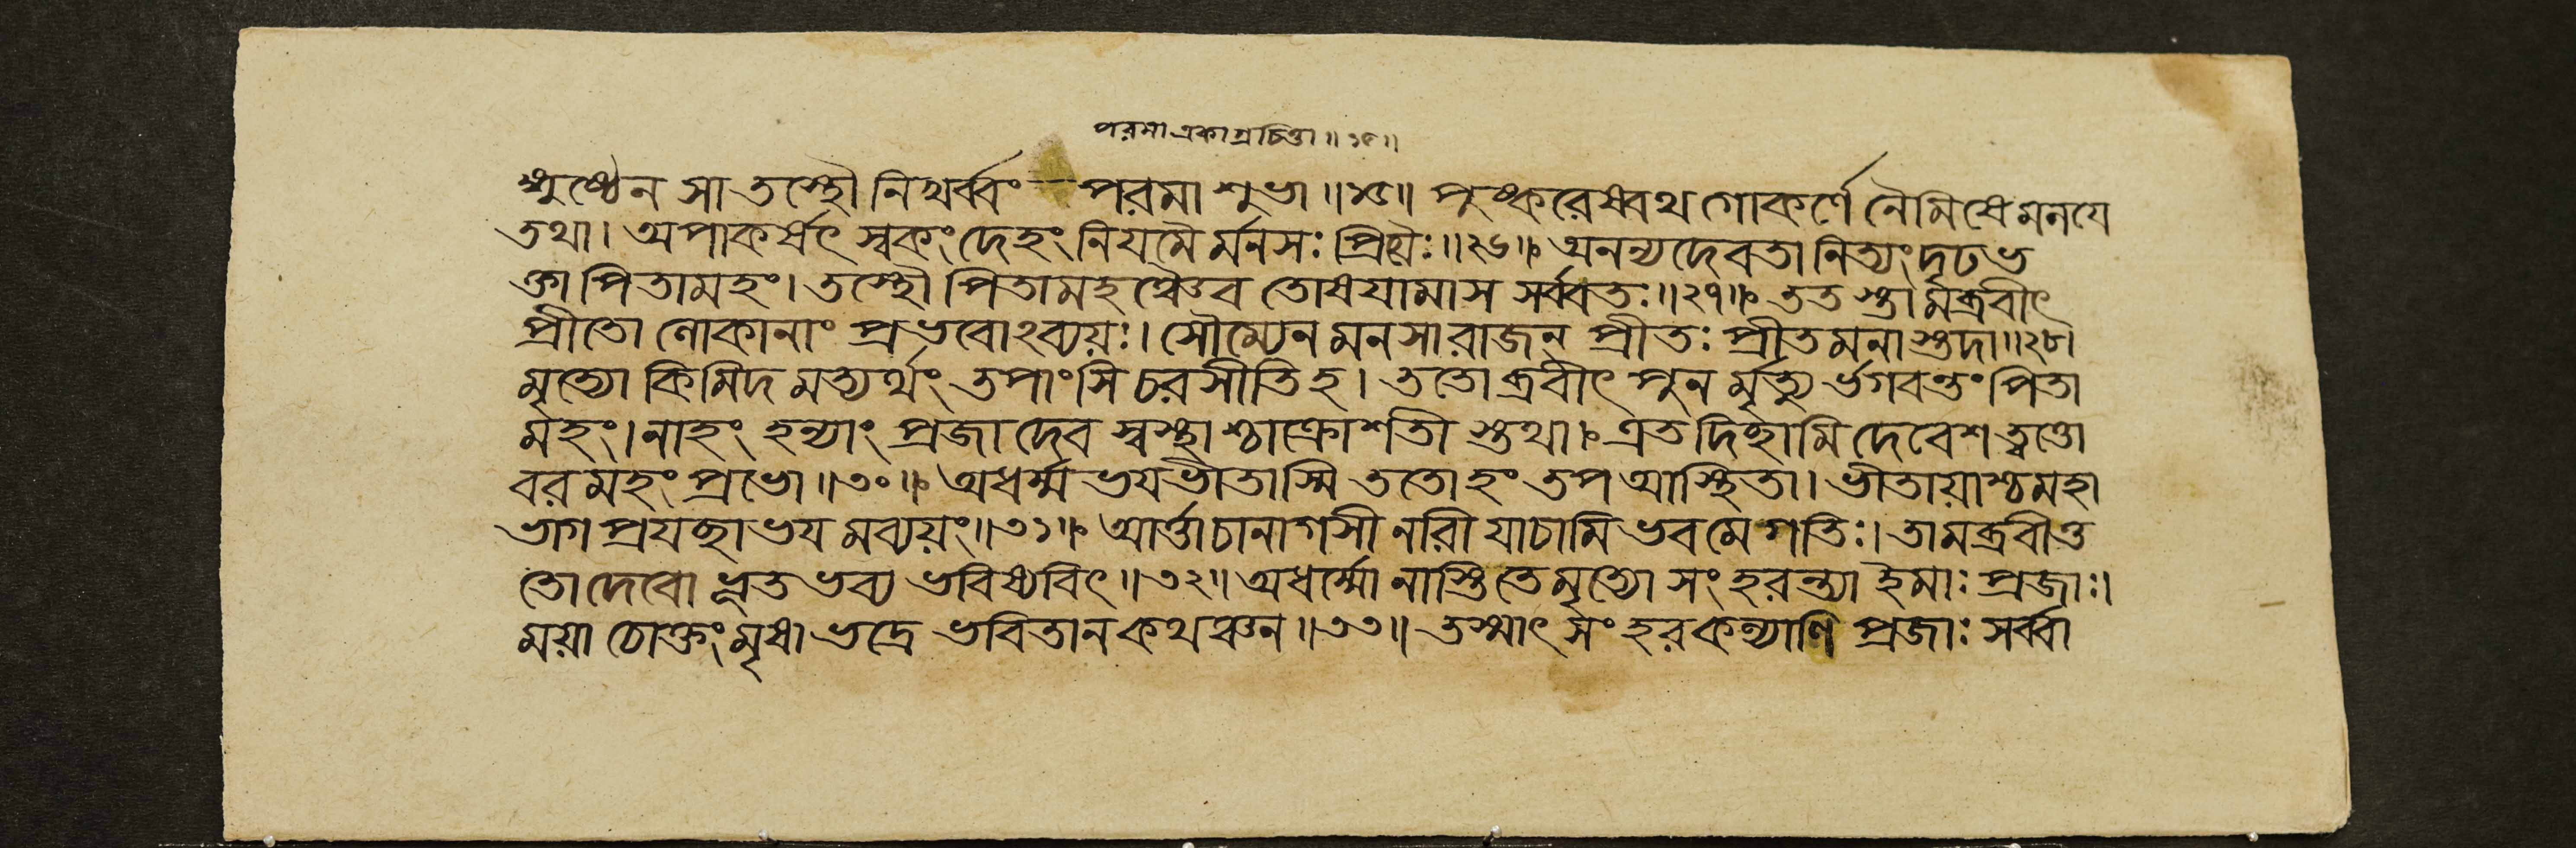 পরমা একাগ্রচিত্তা॥২৫॥
ঙ্গুষ্ঠেন সা তস্থৌ নিখর্ব্বং পরমা শুভা॥২৫॥ পুষ্করেষ্বথ গোকর্ণে নৈমিষে মলয়ে
তথা। অপাকর্ষৎ স্বকং দেহং নিয়মৈ র্মনসঃ প্রিয়ৈঃ॥২৬॥ অনন্যদেবতা নিত্যং দৃঢভ
ক্তা পিতামহং। তস্থৌ পিতামহঞ্চৈব তোষয়ামাস সর্ব্বতঃ॥২৭॥ তত স্তা মব্রবীৎ
প্রীতো লোকানাং প্রভবোঽব্যয়ঃ। সৌম্যেন মনসা রাজন্ প্রীতঃ প্রীতমনা স্তদা॥২৮॥
মৃত্যো কিমিদ মত্যর্থং তপাংসি চরসীতি হ। ততো ব্রবীৎ পুন র্মৃত্যু র্ভগবন্তং পিতা
মহং। নাহং হন্যাং প্রজা দেব স্বস্থা শ্চাক্রোশতী স্তথা। এতদিচ্ছামি দেবেশ ত্বত্তো
বর মহং প্রভো॥৩০॥ অধর্ম্ম ভয়ভীতাস্মি ততোহং তপ আস্থিতা। ভীতায়াশ্চ মহা
ভাগ প্রযচ্ছাভয় মব্যয়ং॥৩১॥ আর্ত্তা চানাগসী নারী যাচামি ভব মে গতিঃ। তামব্রবীত্ত
তো দেবো ভূত ভব্য ভবিষ্যবিৎ॥৩২॥ অধর্ম্মো নাস্তি তে মৃত্যো সংহরন্ত্যা ইমাঃ প্রজাঃ।
ময়া চোক্তং মৃষা ভদ্রে ভবিতা ন কথঞ্চন॥৩৩॥ তস্মাৎ সংহর কল্যাণি প্রজাঃ সর্ব্বা